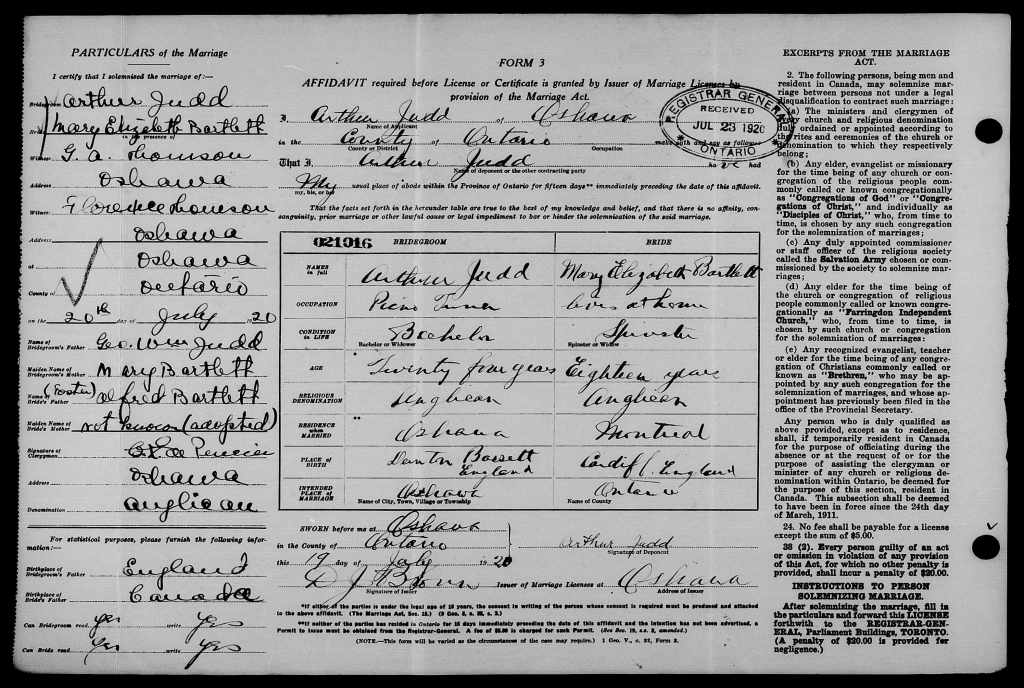 PARTICULARS of the Marriage
I certify that I solemnised the marriage of:—
Bridegroom Arthur Judd
Bride Mary Elizebeth Bartlett
in the presence of
Witness G. A. Thomson
Address Oshawa
Witness Florence Thomson
Address Oshawa
at Oshawa
County of Ontario
on the 20th day of July 1920
Name of Bridegroom's Father Geo. Wm Judd
Maiden Name of Bridegroom's Mother Mary Bartlett
(Foster)
Name of Bride's Father Alfred Bartlett
Maiden Name of Bride's Mother not known (adopted)
Signature of Clergyman
Address Oshawa
Denomination Anglican
For statistical purposes, please furnish the following information:—
Birthplace of Bridegroom's Father England
Birthplace of Bride's Father Canada
Can Bridegroom read yes write yes
Can Bride read yes write yes
FORM 3
AFFIDAVIT required before License or Certificate is granted by Issuer of Marriage Licenses by
provision of the Marriage Act.
I, Arthur Judd of Oshawa
Name of Applicant
in the County of Ontario make oath and say as follows
County or District Occupation
That I, Arthur Judd he had
Name of deponent or the other contracting party
My usual place of abode within the Province of Ontario for fifteen days** immediately preceding the date of this affidavit.
my, his, or her
That the facts set forth in the hereunder table are true to the best of my knowledge and belief, and that there is no affinity, con-
sanguinity, prior marriage or other lawful cause or legal impediment to bar or hinder the solemnization of the said marriage.
REGISTRAR GENERAL
RECEIVED
JUL 23 1920
ONTARIO
021016 BRIDEGROOM BRIDE
NAMES in full Arthur Judd Mary Elizabeth Bartlett
OCCUPATION Piano Tuner lives at home
CONDITION in LIFE Bachelor Spinster
Bachelor or Widower Spinster or Widow
AGE * Twenty four years Eighteen years
RELIGIOUS DENOMINATION Anglican Anglican
RESIDENCE when MARRIED ** Oshawa Montreal
PLACE OF BIRTH Denton Bassett England Cardiff England
INTENDED PLACE OF MARRIAGE Oshawa Ontario
Name of City, Town, Village or Township Name of County
SWORN before me at Oshawa
in the County of Ontario
this 19 day of July 1920
Arthur Judd
Signature of Deponent
Signature of Issuer
Issuer of Marriage Licenses at Oshawa
Address of Issuer
*If either of the parties is under the legal age of 18 years, the consent in writing of the person whose consent is required must be produced and attached
to the above affidavit. (The Marriage Act, Sec. 15.) (3 Geo. 5, c. 32, s. 3.)
**If neither of the parties has resided in Ontario for 15 days immediately preceding the date of this affidavit and the intention has not been advertised, a
Permit to issue must be obtained from the Registrar-General. A fee of $5.00 is charged for such Permit. (See Sec. 19, s.s. 2, amended.)
(NOTE.—This form will be varied as the circumstances of the case may require.) 1 Geo. V., c. 32, Form 3.
EXCERPTS FROM THE MARRIAGE
ACT.
2. The following persons, being men and
resident in Canada, may solemnize mar-
riage between persons not under a legal
disqualification to contract such marriage:
(a) The ministers and clergymen of
every church and religious denomination
duly ordained or appointed according to
the rites and ceremonies of the church or
denomination to which they respectively
belong;
(b) Any elder, evangelist or missionary
for the time being of any church or con-
gregation of the religious people com-
monly called or known congregationally
as "Congregations of God" or "Congre-
gations of Christ," and individually as
"Disciples of Christ," who, from time to
time, is chosen by any such congregation
for the solemnization of marriages;
(c) Any duly appointed commissioner
or staff officer of the religious society
called the Salvation Army chosen or com-
missioned by the society to solemnize mar-
riages;
(d) Any elder for the time being of
the church or congregation of religious
people commonly called or known congre-
gationally as "Farringdon Independent
Church," who, from time to time, is
chosen by such church or congregation
for the solemnization of marriages;
(e) Any recognized evangelist, teacher
or elder for the time being of any congre-
gation of Christians commonly called or
known as "Brethren," who may be ap-
pointed by any such congregation for the
solemnization of marriages, and whose ap-
pointment has previously been filed in the
office of the Provincial Secretary.
Any person who is duly qualified as
above provided, except as to residence,
shall, if temporarily resident in Canada
for the purpose of officiating during the
absence or at the request of or for the
purpose of assisting the clergyman or
minister of any church or religious de-
nomination within Ontario, be deemed for
the purpose of this section, resident in
Canada. This subsection shall be deemed
to have been in force since the 24th day
of March, 1911.
24. No fee shall be payable for a license
except the sum of $5.00.
38 (2). Every person guilty of an act
or omission in violation of any provision
of this Act, for which no other penalty is
provided, shall incur a penalty of $20.00.
INSTRUCTIONS TO PERSON
SOLEMNIZING MARRIAGE.
After solemnizing the marriage, fill in
the particulars and forward this LICENSE
forthwith to the REGISTRAR-GEN-
ERAL, Parliament Buildings, TORONTO.
(A penalty of $20.00 is provided for
negligence.)